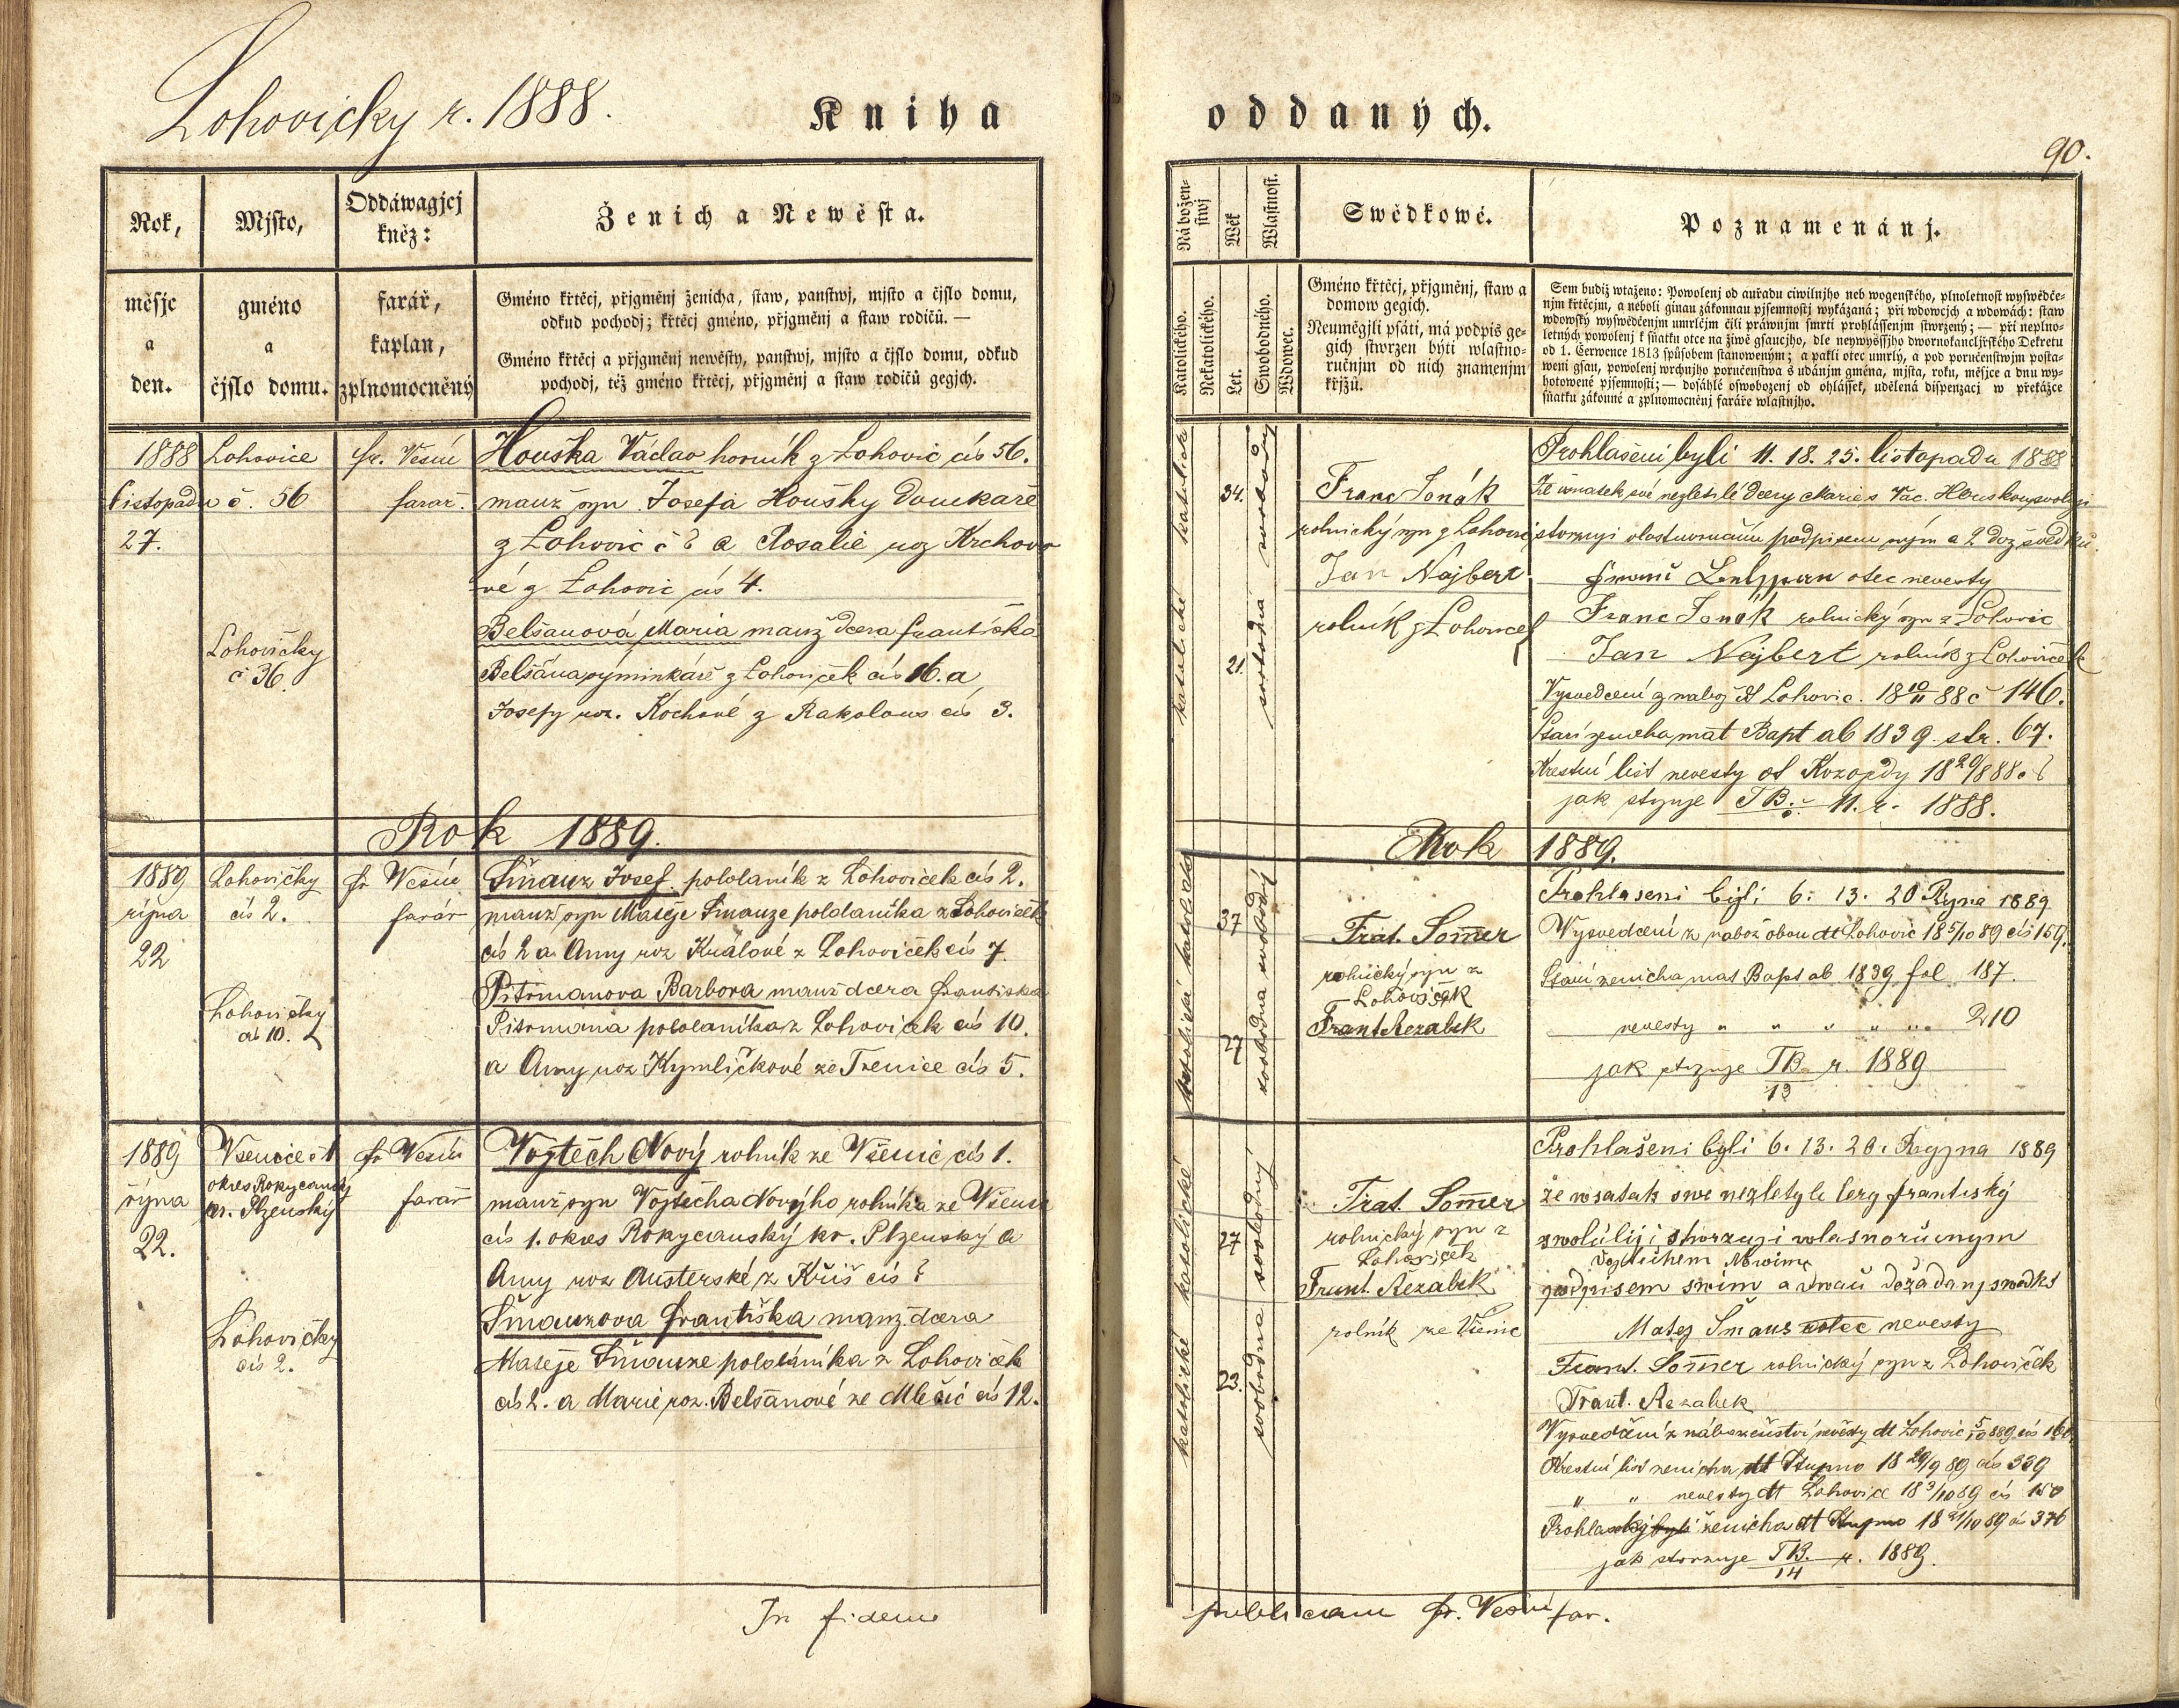 Lohovičky r. 1888.
Kniha
Rok,
Mjsto,
Oddáwagjcj
kněz:
Ženich a Newěsta.
měsjc
a
den.
gméno
a
čjslo domu.
farář,
kaplan,
zplnomocněný
Gméno křtěcj, přjgměnj ženicha, staw, panstwj, mjsto a čjslo domu,
odkud pochodj; křtěcj gméno, přjgměnj a staw rodičů. —
Gméno křtěcj a přjgměnj newěsty, panstwj, mjsto a čjslo domu, odkud
pochodj, též gméno křtěcj, přjgměnj a staw rodičů gegjch.
1888
listopadu
27.
Lohovice
č. 56
Lohovičky
č 36.
fr. Vesín
farář.
Houška Václav horník z Lohovic čís 56.
manž syn Josefa Houšky domkaře
z Lohovic č 8 a Rosalie roz Krchovo
vé z Lohovic čís 4.
Belšanová Maria manž dcera františka
Belšána výminkáře z Lohoviček čís 16. a
Josefy roz. Kochové z Rakolous čís 3.
Rok 1889.
1889
října
22
Lohovičky
čís 2.
Lohovičky
čís 10.
fr Vesín
farář
Šmauz Josef pololaník z Lohoviček čís 2.
manž syn Matěje Šmauze pololaníka z Lohoviček
čís 2 a Anny roz Králové z Lohoviček čís 7.
Pitrmanova Barbora manž dcera františka
Pitrmana pololaníka z Lohoviček čís 10.
a Anny roz Kymličkové ze Trenice čís 5.
1889
října
22.
Všenice č 1
okres Rokycanský
kr. Plzenský
Lohovičky
čís 2.
fr Vesín
farář
Vojtěch Nový rolník ze Všenic čís 1.
manž syn Vojtěcha Nového rolníka ze Všenic
čís 1. okres Rokycanský kr. Plzenský a
Anny roz Austerské z Kříš čís ?
Šmauzova františka manž dcera
Matěje Šmauze pololáníka z Lohoviček
čís 2. a Marie roz. Belšanové ze Mlečic čís 12.
In fidem
oddaných.
90.
Náboženstwj
Wěk
Wlastnost.
Swědkowé.
Poznamenánj.
Katolického.
Nekatolického.
Let.
Swobodného.
Wdowec.
Gméno křtěcj, přjgměnj, staw a
domow gegich.
Neuměgjli psáti, má podpis ge-
gich stwrzen býti wlastno-
ručnjm od nich znamenjm
křjžů.
Sem budiž wtaženo: Powolenj od auřadu ciwilnjho neb wogenského, plnoletnost wyswědče-
njm křtěcjm, a neboli ginau zákonnau pjsemnostj wykázaná; při wdowcjch a wdowách: staw
wdowský wyswědčenjm umrlčjm čili práwnjm smrti prohlássenjm stwrzený; — při neplno-
letných powolenj k sňatku otce na žiwě gsaucjho, dle neywyššjho dwornokancljřského Dekretu
od 1. Července 1813 spůsobem stanoweným; a pakli otec umrlý, a pod poručenstwjm posta-
weni gsau, powolenj wrchnjho poručenstwa s udánjm gména, mjsta, roku, měsjce a dnu wy-
hotowené pjsemnosti; — dosáhlé oswobozenj od ohlássek, udělená dispenzacj w překážce
sňatku zákonné a zplnomocněnj faráře wlastnjho.
katolické
katolické
34.
21.
svobodný
svobodná
Franc Jonák
rolnický syn z Lohovic
Jan Najbert
rolník z Lohoviček
Prohlašeni byli 11. 18. 25. listopadu 1888
Že snatek své nezletilé dcery Marie s Vac. Houskou svoluji
stvrzuji vlastnoručním podpisem svým a 2 dož svědků.
otec nevesty
Franc Jonák rolnický syn z Lohovic
Jan Najbert rolník z Lohoviček
Vysvedčení z nabož dt Lohovic. 18 10/11 88 č 146.
Stáří ženicha mat Bapt ab 1839 str. 67.
Křestní list nevesty dt Kozojedy 18 29/8 88. č
jak stvrzuje TB.: 11. r. 1888.
Rok 1889.
katolické katolické
37
27
svobodna svobodný
Frat. Somer
rolnický syn z
Lohoviček
Frant Rezabek
Prohlaseni byli 6. 13. 20 Ryna 1889
Vysvedcení z nabož obou dt Lohovic 18 5/10 89 čís 159.
Staří ženicha mat Bapt ab 1839 fol 187.
nevesty " " " " " 210
jak stvrzuje TB r. 1889
13
katolické katolické
27
23.
svobodna svobodný
Frat. Somer
rolnický syn z
Lohoviček
Frant. Řezabek
rolník ze Všenic
Prohlašeni byli 6. 13. 20. Ryjna 1889
že wsatak swe nezletyle Cery frantisky
Vojtiehem Nowima
zwolulij i stwrzuji wlasnoručnym
podpisem swim a dwau dožadanj swadků
Matej Šmaus otec nevesty
Frant. Somer rolnický syn z Lohoviček
Frant. Rezabek
Vysvedčení z náboženství nevěsty dt Lohovic 5/10 889 čís 160
Křestní list ženicha dt Stupno 18 29/9 89 čís 339
" " nevesty dt Lohovice 18 3/10 89 čís 150
Prohlasky byli ženicha dt Stupno 18 21/10 89 čís 376
jak stvrzuje TB. r. 1889.
14
publicam fr. Vesín far.